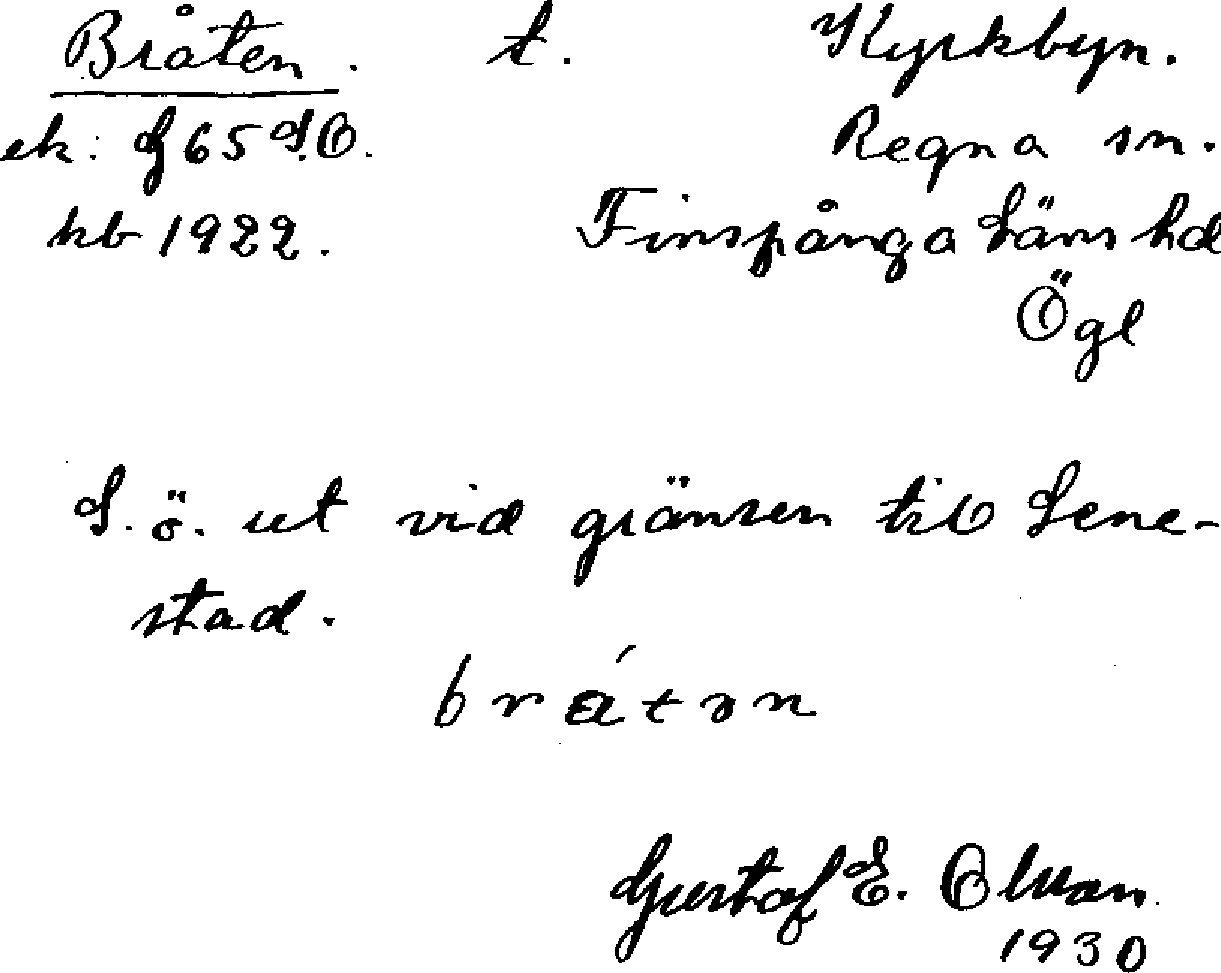 Bråten. t. Kyrkbyn.
ek: G 65 S.O. Regna sn.
hb 1922. Finspånga Läns hd
Ögl
S. ö. ut vid gränsen till Sene-
stad.
b r á t ə n
Gustaf E. Olsson
1930